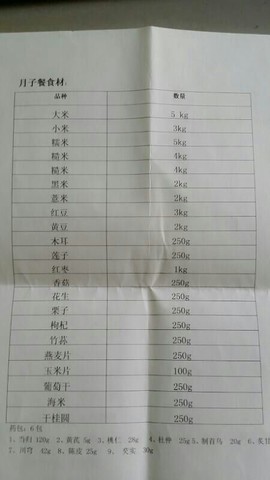 月子餐食材:
品种 数量
大米 5 kg
小米 3kg
糯米 5kg
糙米 4kg
糙米 4kg
黑米 2kg
薏米 2kg
红豆 3kg
黄豆 2kg
木耳 250g
莲子 250g
红枣 1kg
香菇 250g
花生 250g
栗子 250g
枸杞 250g
竹荪 250g
燕麦片 250g
玉米片 100g
葡萄干 250g
海米 250g
干桂圆 250g
药包:6包
1、当归 120g 2、黄芪 5g 3、桃仁 28g 4、杜仲 25g 5、制首乌 20g 6、炙甘
7、川芎 42g 8、陈皮 25g 9、芡实 30g